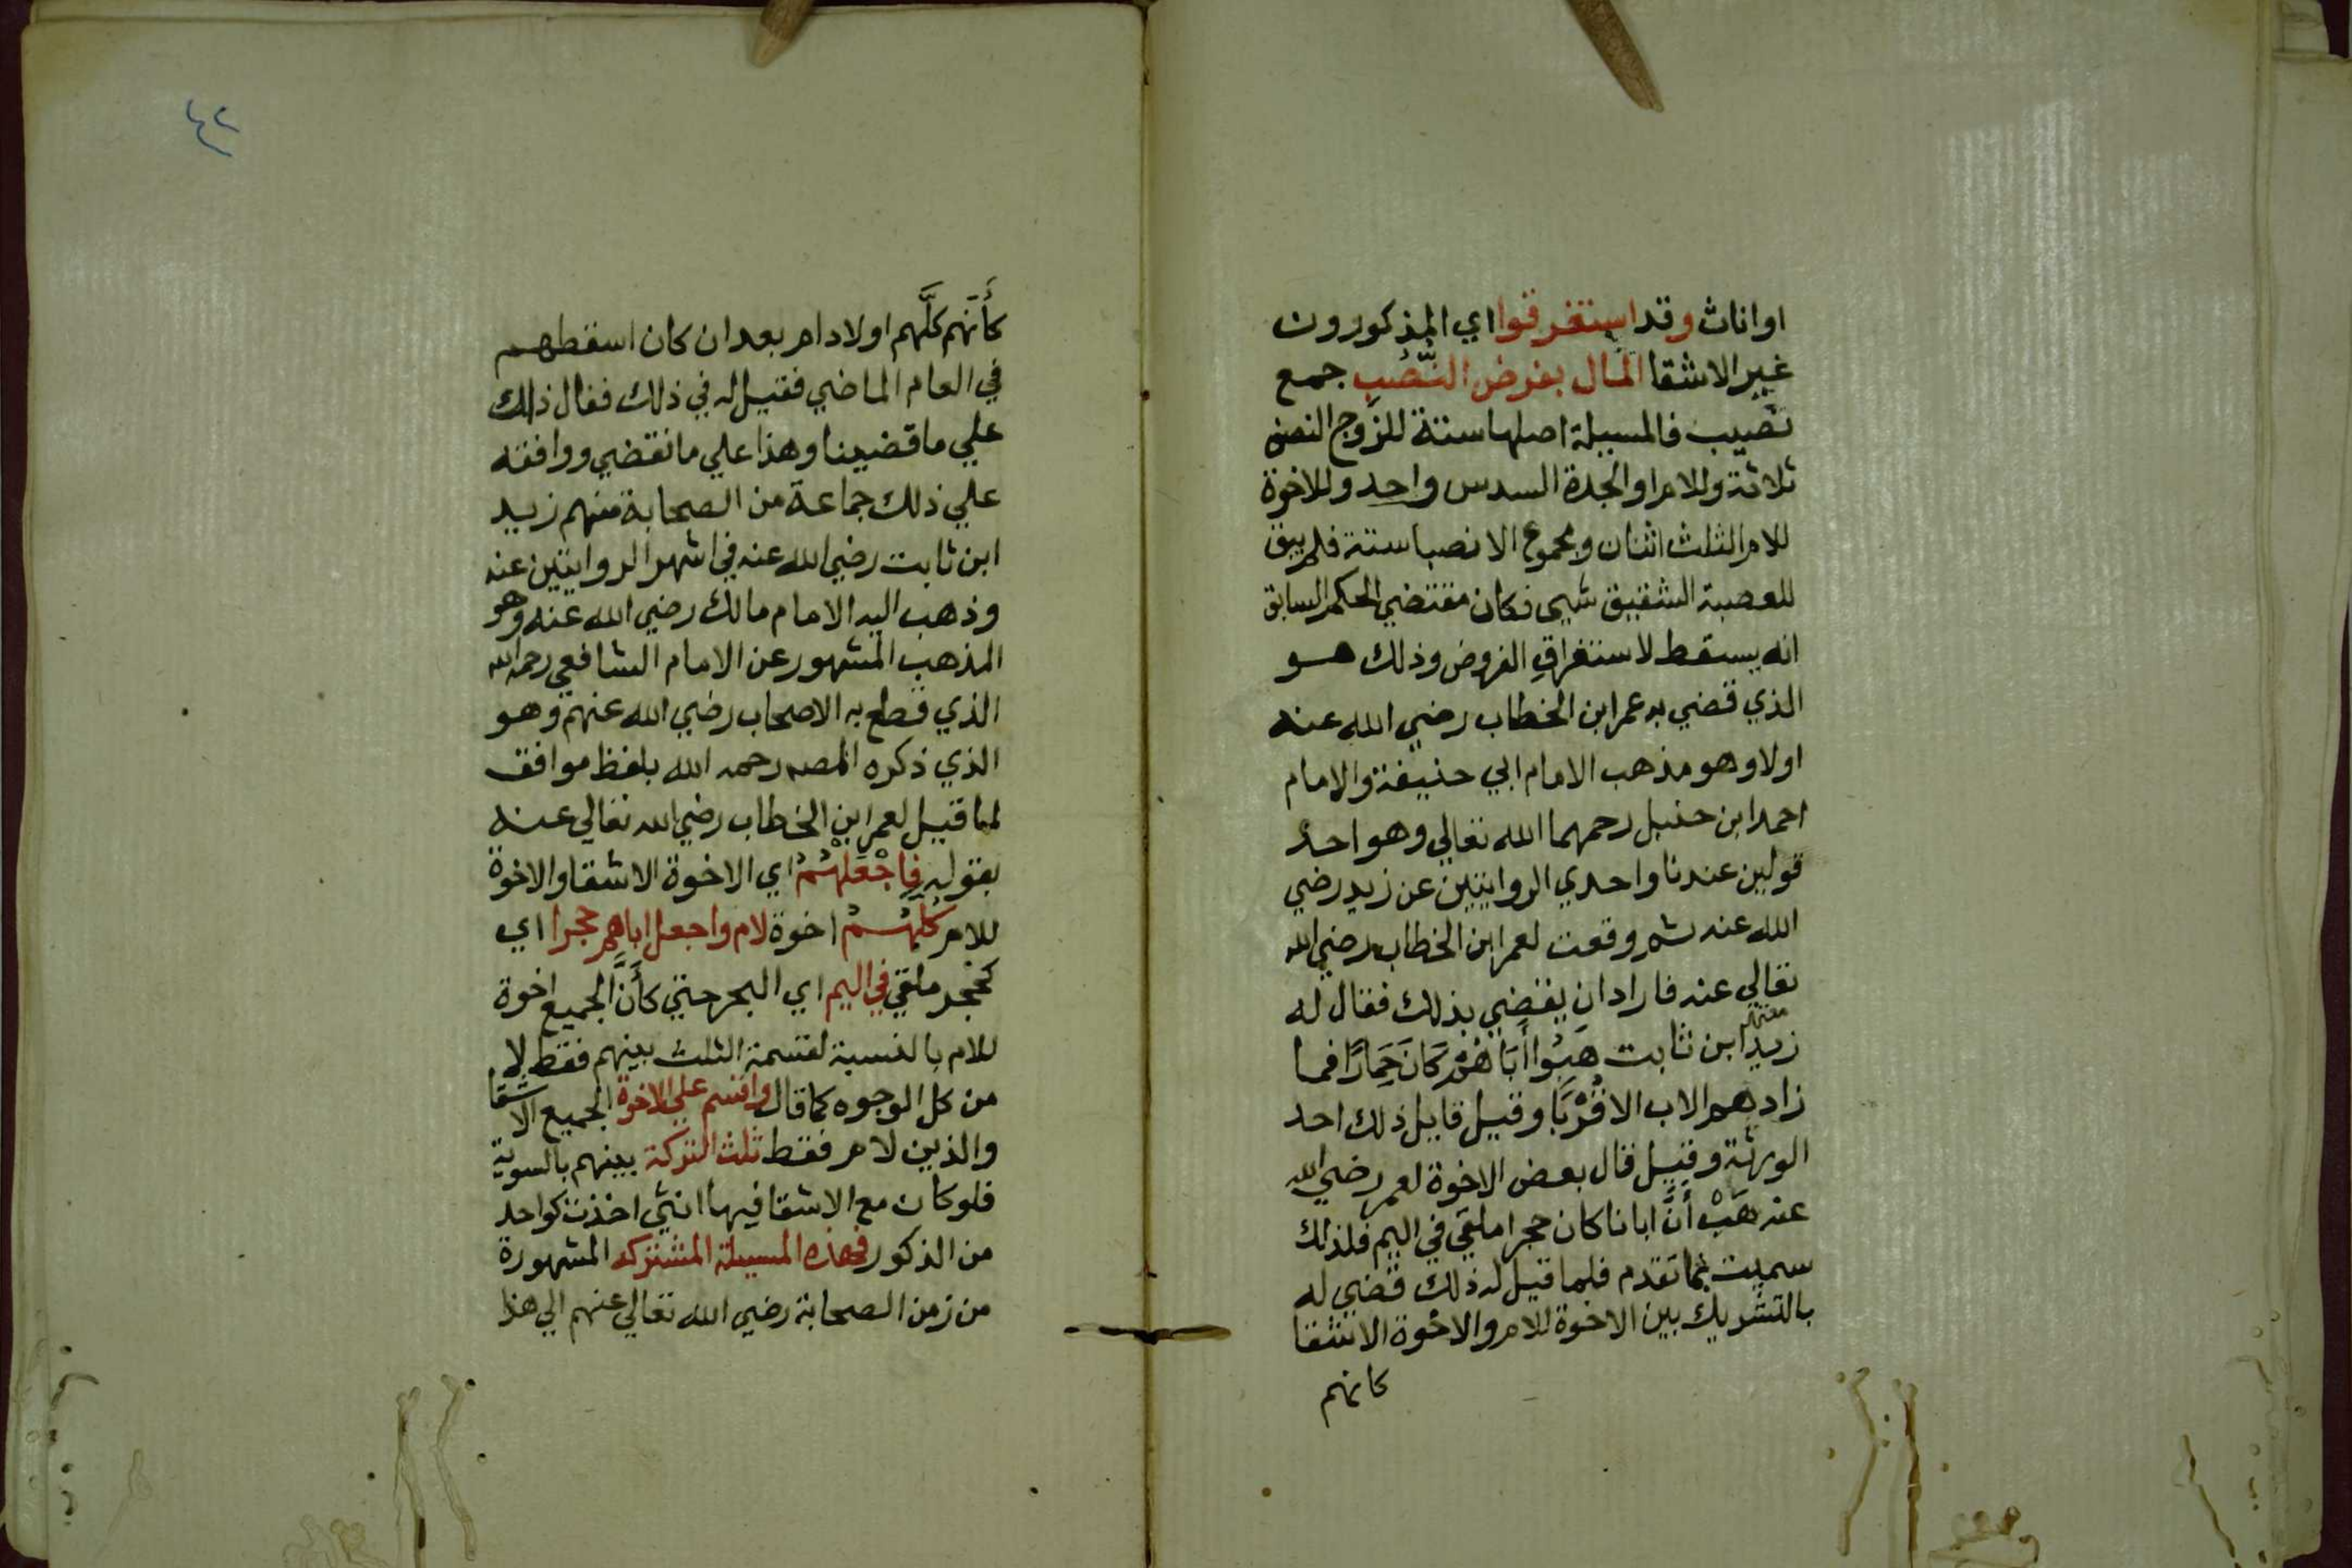 اواناث وقد استغرقوا اي المذكورون
غير الاشقا المال بفرض النُّصُبِ جمع
نصيب فالمسيلة اصلها ستة للزوج النصف
ثلاثة وللام او الجدة السدس واحد وللاخوة
للام الثلث اثنان ومجموع الانصبا ستة فلم يبق
للعصبة الشقيق شيي فكان مقتضي الحكم السابق
انه يسقط لاستغراقِ الفروض وذلك هو
الذي قضي به عمر ابن الخطاب رضي الله عنه
اولا وهو مذهب الامام ابي حنيفة والامام
احمد ابن حنبل رحمهما الله تعالي وهو احد
قولين عندنا واحدي الروايتين عن زيد رضي
الله عنه ثم وقعت لعمر ابن الخطاب رضي الله
تعالي عنه فاراد ان يقضي بذلك فقال له
زيد ابن ثابت هَبُوا أَبَاهُمْ كَانَ حِمَارًا فما
زادهم الاب الا قُرْبًا وقيل قايل ذلك احد
الورثة وقيل قال بعض الاخوة لعمر رضي الله
عنه هَبْ أَنَّ ابانا كان حجرا ملقي في اليم فلذلك
سميت بما تقدم فلما قيل له ذلك قضي له
بالتشريك بين الاخوة للام والاخوة الاشقا
كانهم
٤٢
كَأَنَّهم كلَّهم اولاد ام بعد ان كان اسقطهم
في العام الماضي فقيل له في ذلك فقال ذلك
علي ما قضينا وهذا علي ما نقضي ووافقه
علي ذلك جماعة من الصحابة منهم زيد
ابن ثابت رضي الله عنه في اشهر الروايتين عنه
وذهب اليه الامام مالك رضي الله عنه وهو
المذهب المشهور عن الامام الشافعي رحمه الله
الذي قطع به الاصحاب رضي الله عنهم وهو
الذي ذكره المصه رحمه الله بلفظ موافق
لما قيل لعمر ابن الخطاب رضي الله تعالي عنه
بقوله فاجْعَلْهُمُ اي الاخوة الاشقا والاخوة
للام كُلَّهُمُ اخوة لام واجعل اباهم حجرا اي
كحجر ملقي في اليم اي البحر حتي كأَنَّ الجميع اخوة
للام بالنسبة لقسمة الثلث بينهم فقط لا
من كل الوجوه كما قال واقسم علي الاخوة الجميع الاشقا
والذين لام فقط ثلث التركة بينهم بالسوية
فلو كان مع الاشقا فيها انثي اخذت كواحد
من الذكور فهذه المسيلة المشتركه المشهورة
من زمن الصحابة رضي الله تعالي عنهم الي هذا